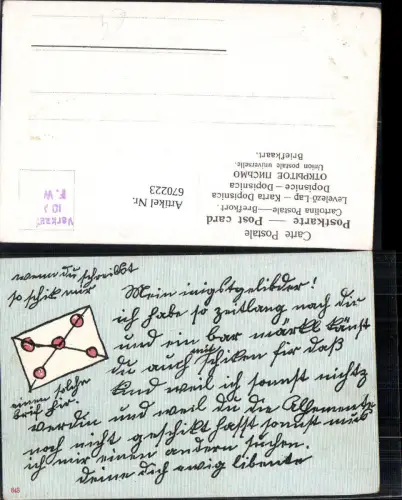 Carte Postale
Postkarte — Post card
Cartolina Postale — Brefkort
Levelező-Lap — Karta Dopisnica
Dopisnice — Dopisnica
ОТКРЫТОЕ ПИСЬМО
Union postale universelle.
Briefkaart.
Artikel Nr.
670223
wenn du schreibst
so schik mir
einen solche
brif hir.
Mein inigstgelibder!
ich habe so zeitlang nach dir
und ein bar märkl känst
du auch mit schiken für daß
Kind weil ich sonst nichtz
werdin und weil du die Allemente
noch nicht geschikt hasst sonst muß
ich mir einen andern suchen.
deine dich ewig libente
845